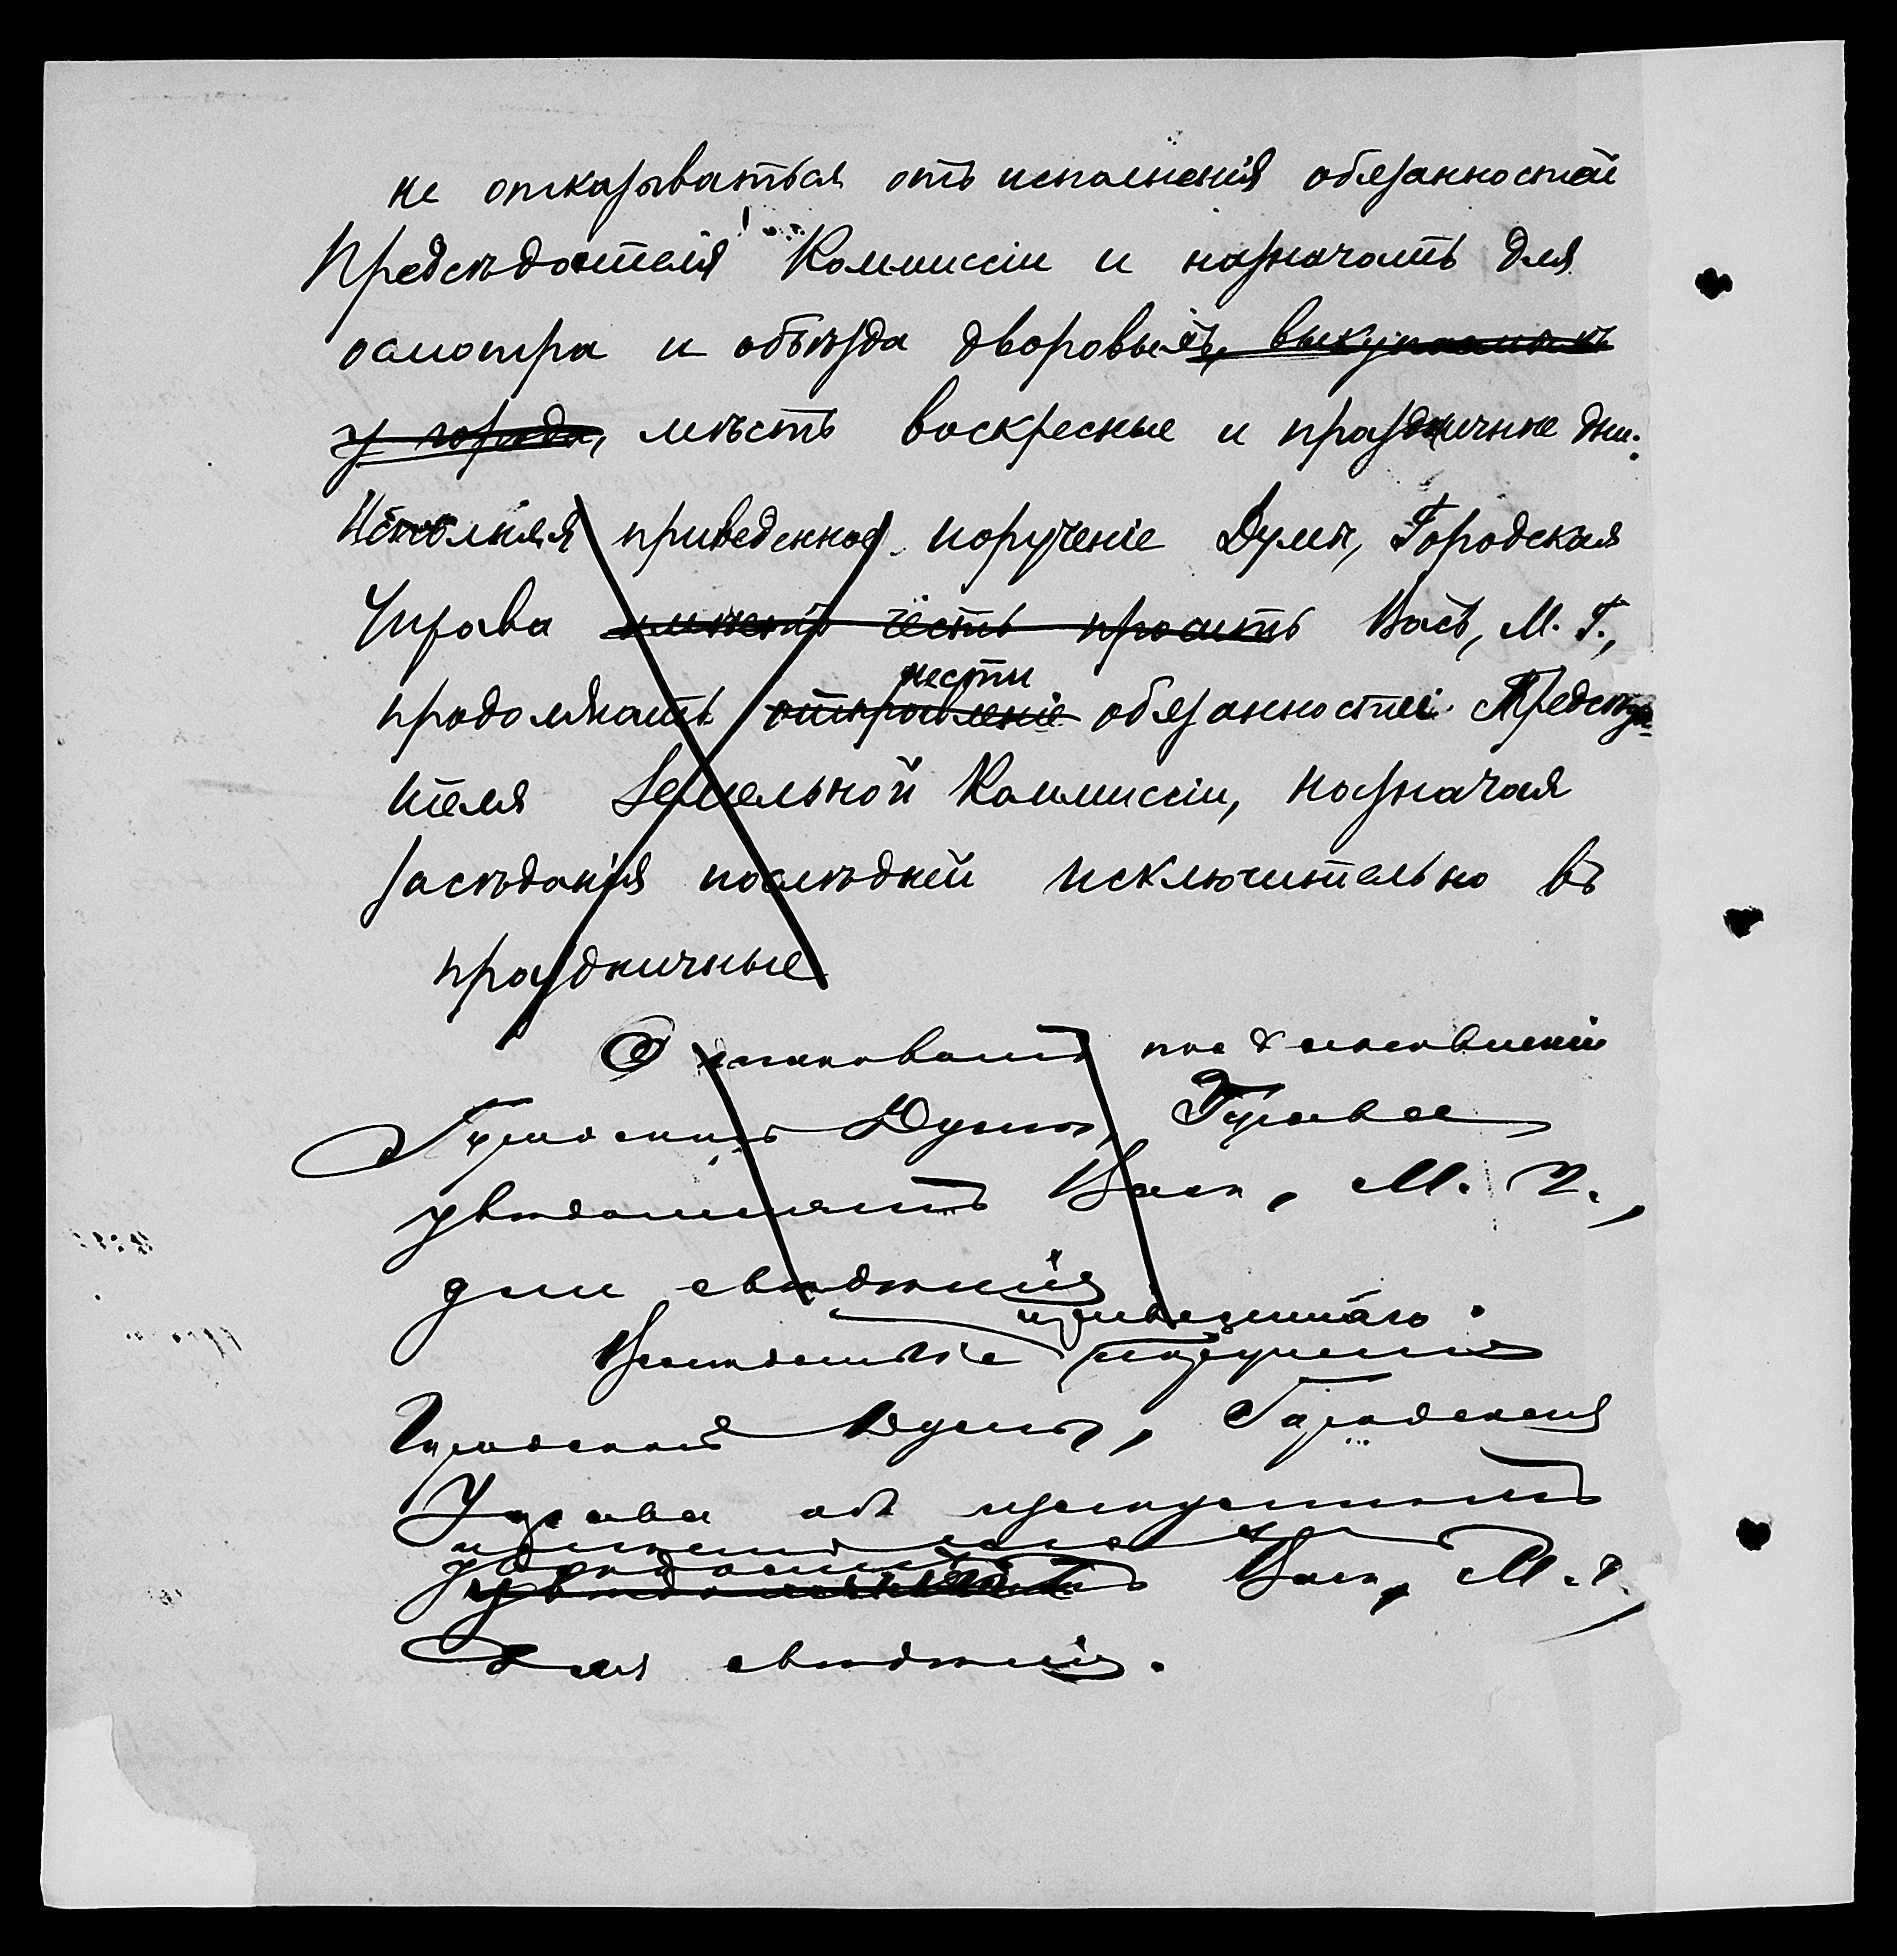 не отказываться отъ исполненія обязанностей
Предсѣдателя Коммиссіи и назначать для
осмотра и объѣзда дворовыхъ, выкупаемыхъ
у города, мѣстъ воскресные и праздничные дни.
Исполняя приведенное порученіе Думы, Городская
Управа имѣетъ честь просить Васъ, М. Г.,
нести
продолжать отправленіе обязанностей Предсѣда-
теля Земельной Коммиссіи, назначая
засѣданія послѣдней исключительно въ
праздничные
О таковомъ постановленіи
Городской Думы, Управа
увѣдомляетъ Васъ, М. Г.,
для свѣдѣнія
приведеннаго
Вслѣдствіе порученія
Городской Думы, Городская
Управа объ
увѣдомляетъ Васъ, М. Г.,
для свѣдѣнія.